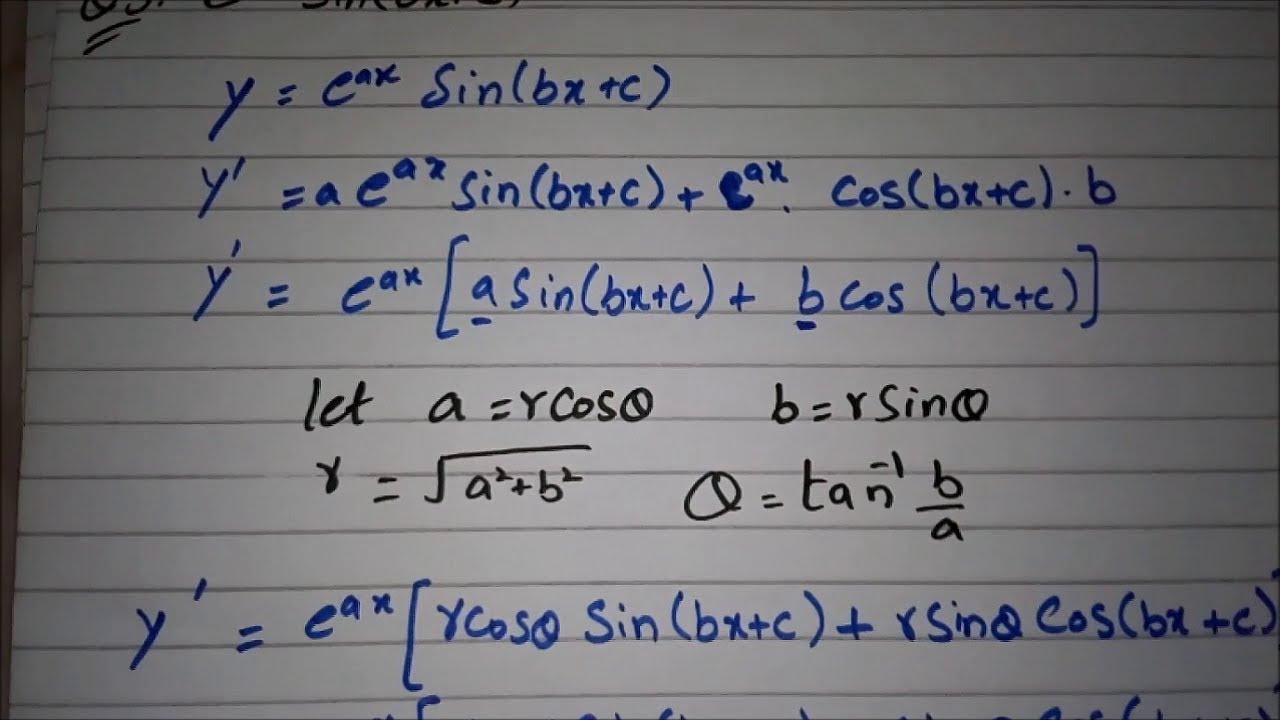 y = e^{ax} Sin(bx+c)
y' = a e^{ax} sin(bx+c) + e^{ax}. cos(bx+c) · b
y' = e^{ax} [a sin(bx+c) + b cos (bx+c)]
let a = r cosθ b = r sinθ
r = √(a²+b²) θ = tan⁻¹ b/a
y' = e^{ax} [r cosθ Sin(bx+c) + r sinθ Cos(bx+c)